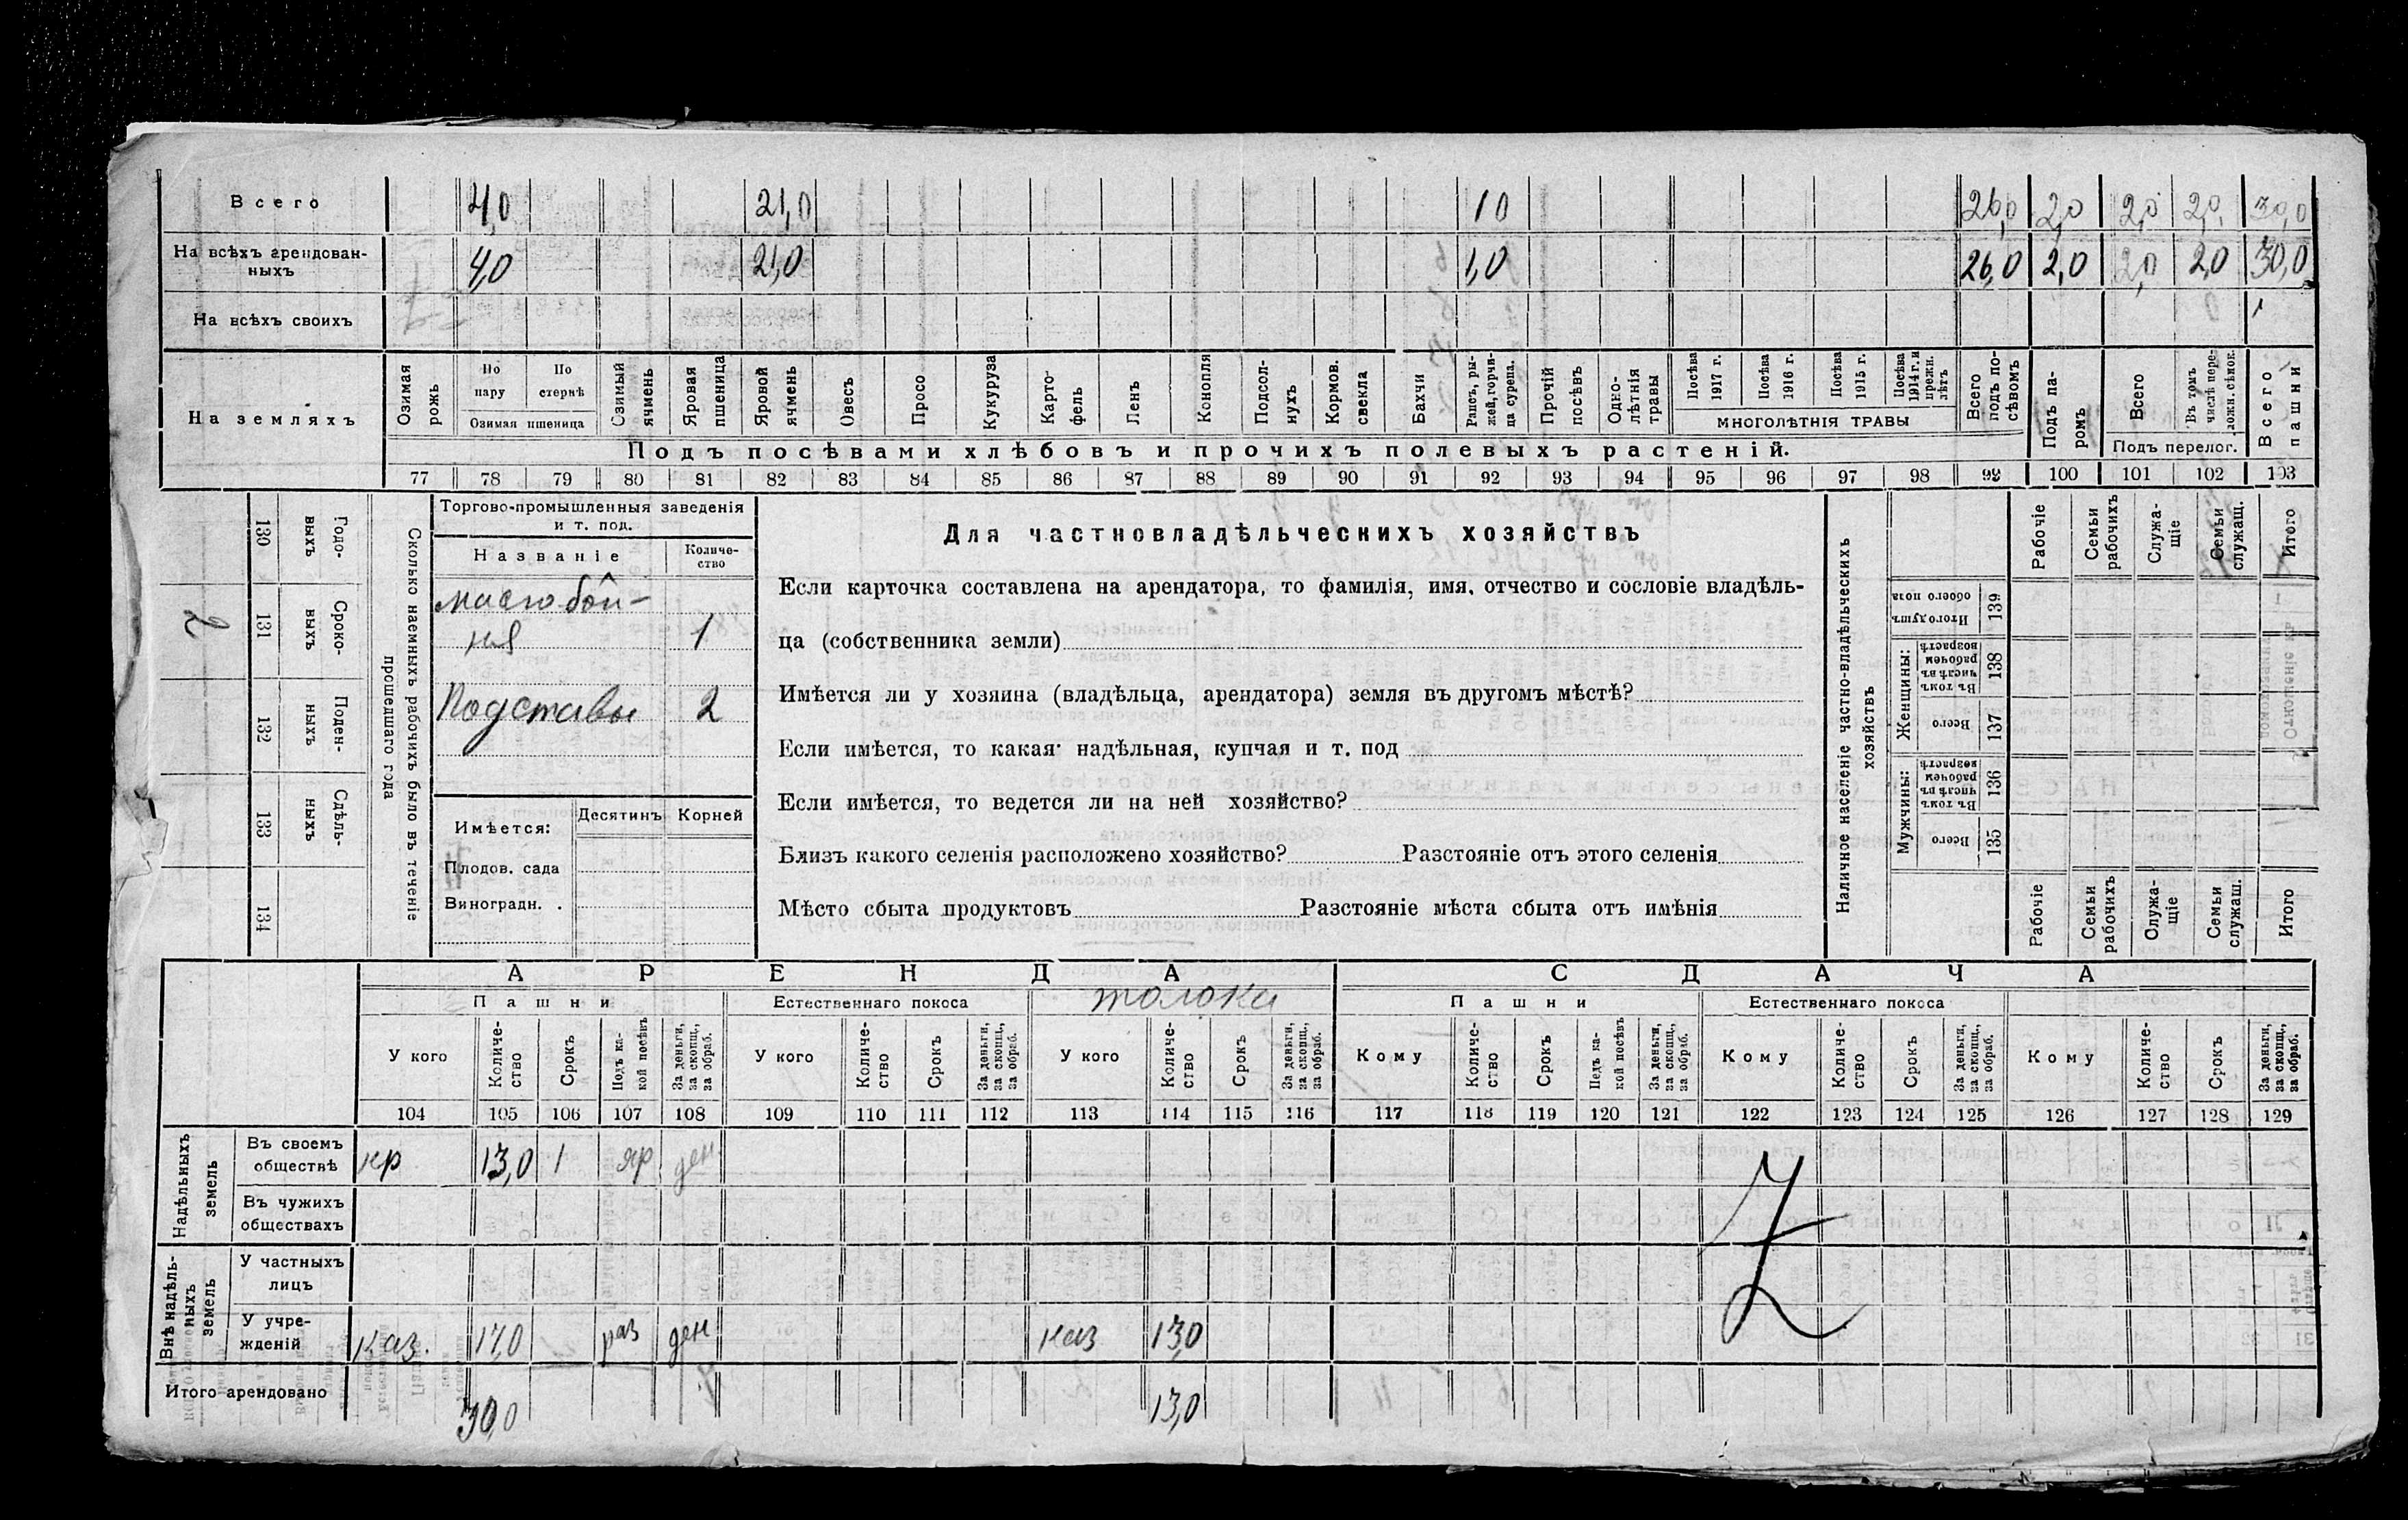 Всего 4,0 21,0 10 26,0 2,0 2,0 2,0 30,0
На всѣхъ арендован-
ныхъ 4,0 21,0 1,0 26,0 2,0 2,0 2,0 30,0
На всѣхъ своихъ
На земляхъ
Озимая рожь
По пару
По стернѣ
Озимая пшеница
Озимый ячмень
Яровая пшеница
Яровой ячмень
Овесъ
Просо
Кукуруза
Карто-
фель
Ленъ
Конопля
Подсол-
нухъ
Кормов. свекла
Бахчи
Рапсъ, ры-
жей, горчи-
ца сурепа.
Прочій посѣвъ
Одно-
лѣтнія травы
Посѣва 1917 г.
Посѣва 1916 г.
Посѣва 1915 г.
Посѣва 1914 г. и прежн. лѣтъ
МНОГОЛѢТНІЯ ТРАВЫ
Всего подъ по-
сѣвомъ
Подъ па-
ромъ
Всего
Въ томъ числѣ пере-
ложн. сѣнок.
Подъ перелог.
Всего пашни
Подъ посѣвами хлѣбовъ и прочихъ полевыхъ растеній.
77 78 79 80 81 82 83 84 85 86 87 88 89 90 91 92 93 94 95 96 97 98 99 100 101 102 103
Сколько наемныхъ рабочихъ было въ теченіе
прошедшаго года
Годо-
выхъ
130
Сроко-
выхъ
131
2
Поден-
ныхъ
132
Сдѣль-
ныхъ
133
134
Торгово-промышленныя заведенія
и т. под.
Названіе
Количе-
ство
маслобой-
ня 1
Подставы 2
Имѣется:
Десятинъ
Корней
Плодов. сада
Виноградн. .
Для частновладѣльческихъ хозяйствъ
Если карточка составлена на арендатора, то фамилія, имя, отчество и сословіе владѣль-
ца (собственника земли)
Имѣется ли у хозяина (владѣльца, арендатора) земля въ другомъ мѣстѣ?
Если имѣется, то какая: надѣльная, купчая и т. под
Если имѣется, то ведется ли на ней хозяйство?
Близъ какого селенія расположено хозяйство? Разстояніе отъ этого селенія
Мѣсто сбыта продуктовъ Разстояніе мѣста сбыта отъ имѣнія
Наличное населеніе частно-владѣльческихъ
хозяйствъ
Рабочіе
Семьи рабочихъ
Служа-
щіе
Семьи служащ.
Итого
Итого душъ обоего пола
139
Женщины:
Въ томъ числѣ въ рабочемъ возрастѣ
138
Всего
137
Мужчины:
Въ томъ числѣ въ рабочемъ возрастѣ
136
Всего
135
Рабочіе
Семьи рабочихъ
Служа-
щіе
Семьи служащ.
Итого
АРЕНДА
СДАЧА
Пашни
Естественнаго покоса
толока
Пашни
Естественнаго покоса
У кого
Количе-
ство
Срокъ
Подъ ка-
кой посѣвъ
За деньги, за скопщ., за обраб.
У кого
Количе-
ство
Срокъ
За деньги, за скопщ., за обраб.
У кого
Количе-
ство
Срокъ
За деньги, за скопщ., за обраб.
Кому
Количе-
ство
Срокъ
Подъ ка-
кой посѣвъ
За деньги, за скопщ., за обраб.
Кому
Количе-
ство
Срокъ
За деньги, за скопщ., за обраб.
Кому
Количе-
ство
Срокъ
За деньги, за скопщ., за обраб.
104 105 106 107 108 109 110 111 112 113 114 115 116 117 118 119 120 121 122 123 124 125 126 127 128 129
Надѣльныхъ
земель
Въ своемъ
обществѣ кр 13,0 1 яр ден
Въ чужихъ
обществахъ
Внѣ надѣль-
ныхъ
земель
У частныхъ
лицъ
У учре-
жденій каз. 17,0 раз ден каз 13,0
Итого арендовано 30,0 13,0